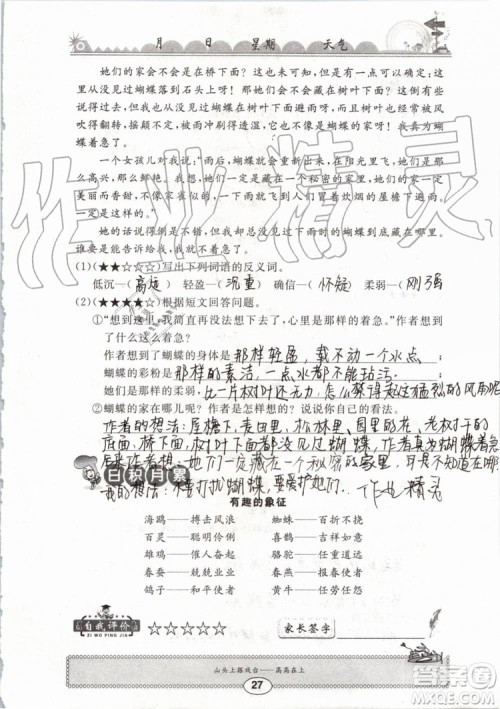 月 日 星期 天气
她们的家会不会是在桥下面？这也未可知，因为我无法确定；但是我实在
从没见过蝴蝶落到石头上呀！那么她们会不会藏在树叶下面呢？这仿佛有些
说得过去，但是我从没见过蝴蝶在树叶下面停息过，而且树叶经常也被风
吹得翻转，摇颠不定，被雨冲刷得透透，不像是蝴蝶的家呀！我真为蝴蝶
着急！
一个女孩儿对我说，雨后，蝴蝶就会重新出来，在阳光里飞，她们是那么
高兴，那么美丽，那么轻盈！她们一定是藏在一个秘密的家里，她们的家一定
美丽而香甜，不像家雀似的，一到下雨就飞到冒着炊烟的屋檐下避雨。
她的话说得多么好呀！但是，下雨时我看不到她们的家呀！
谁要是能告诉我，我就不会再为她们着急了。
(1)(★★☆☆☆)写出下列词语的反义词。
低沉—高远 轻盈—沉重 确信—怀疑 柔弱—刚强
(2)(★★★★☆)根据短文回答问题。
①“想到这里，我简直再没法想下去了，心里是那样的着急。”作者想到
了什么这么着急？
作者想到蝴蝶的身体是那样轻盈，载不动一个水点；
蝴蝶的彩粉是那样的素洁，一点水都不能动污；
她们是那样柔弱，比一片树叶还无力，怎么禁得起这猛烈的风雨呢
②蝴蝶的家在哪儿呢？作者是怎样想的？说说你自己的看法。
作者的想法：屋宇，麦田里，松林里，园里的花，老树干的
底面，桥下面，树叶下面没见到蝴蝶，作者真为蝴蝶着急
后来作者想，她们一定藏在一个秘密的家里，可是不知在哪。
日积月累
我的想法：待打扰蝴蝶，要爱护她们。 作业精灵
有趣的象征
海鸥——搏击风浪 蜘蛛——百折不挠
百灵——聪明伶俐 喜鹊——吉祥如意
雄鸡——催人奋起 骆驼——任重道远
春蚕——兢兢业业 春燕——报春使者
鸽子——和平使者 黄牛——任劳任怨
自我评价 ☆☆☆☆☆ 家长签字
ZI WO PING JIA
山头上搭戏台——高高在上
27
作业精灵